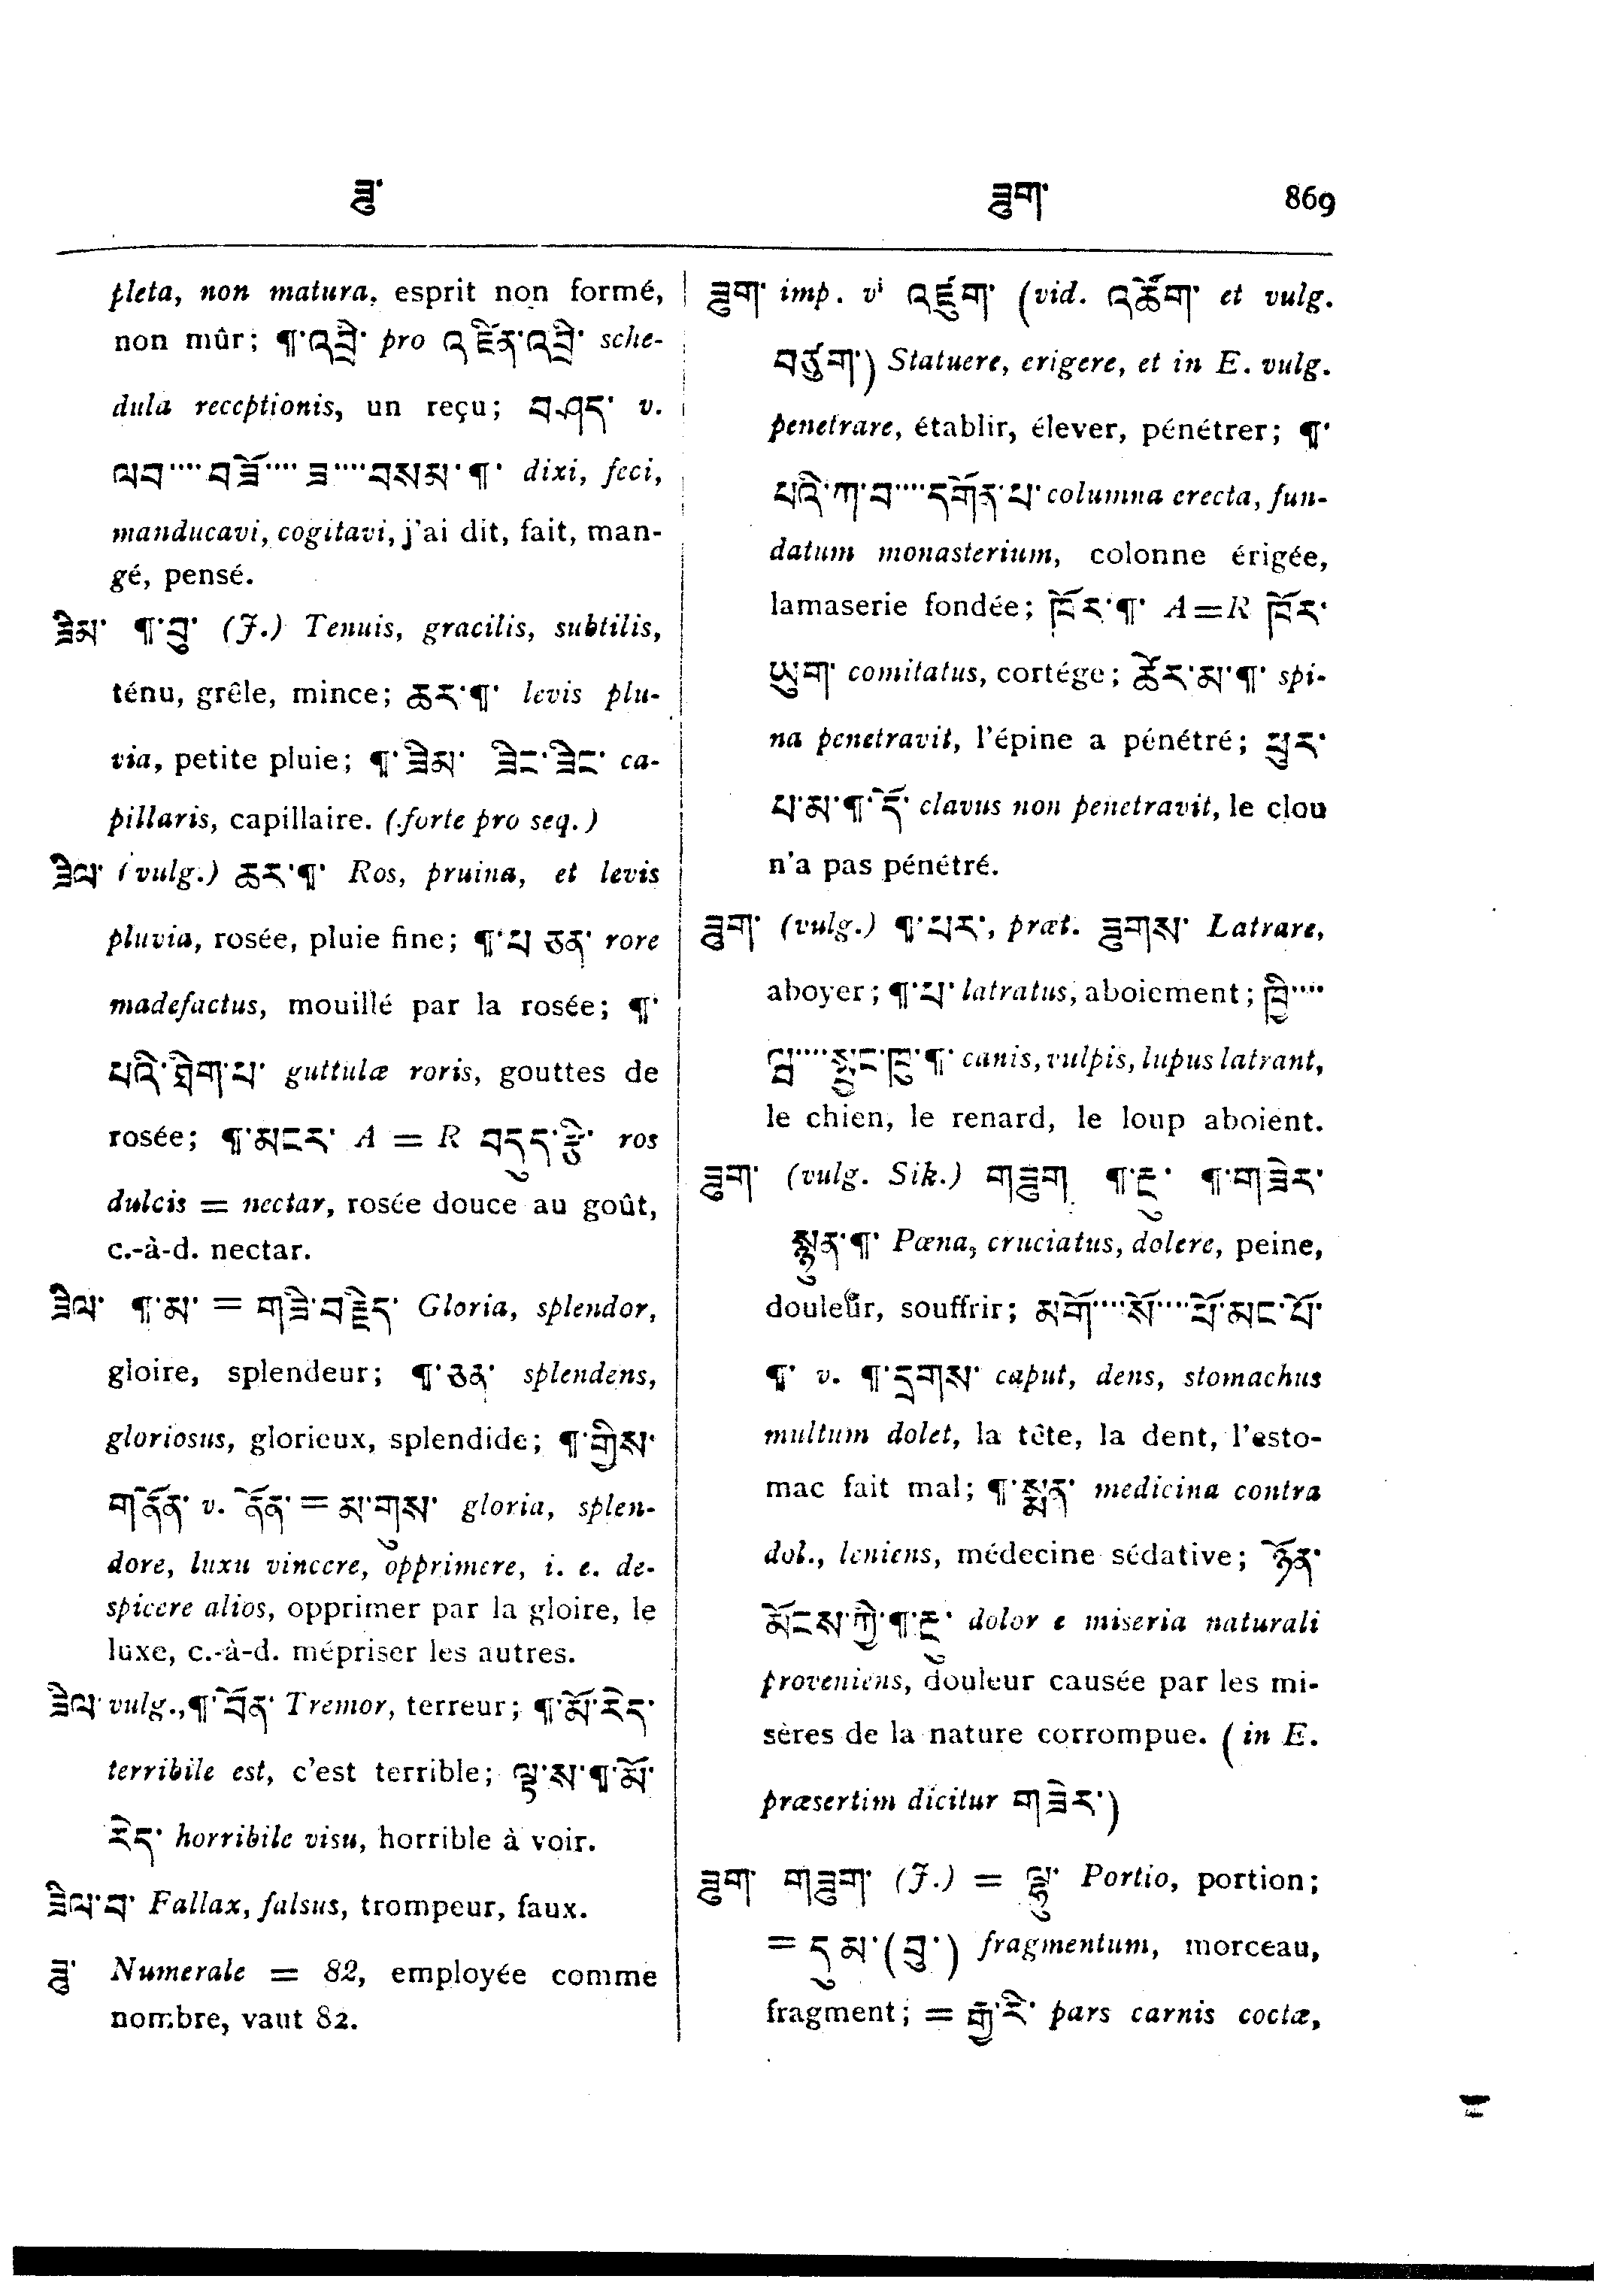 ཟུ་
ཟུག་ 869
pleta, non matura, esprit non formé,
non mûr; ¶་འབྲི་ pro འཛིན་འབྲི་ sche-
dula receptionis, un reçu; བཤད་ v.
ལབ་···· བཟོ་···· ཟ་···· བསམ་¶་ dixi, feci,
manducavi, cogitavi, j'ai dit, fait, man-
gé, pensé.
ཟིམ་ ¶་བུ་ (J.) Tenuis, gracilis, subtilis,
ténu, grêle, mince; ཆར་¶་ levis plu-
via, petite pluie; ¶་ཟིམ་ ཟིང་ཟིང་ ca-
pillaris, capillaire. (forte pro seq.)
ཟིལ་ (vulg.) ཆར་¶་ Ros, pruina, et levis
pluvia, rosée, pluie fine; ¶་པ་ཅན་ rore
madefactus, mouillé par la rosée; ¶་
པའི་ཐིག་པ་ guttulæ roris, gouttes de
rosée; ¶་མངར་ A = R བདུད་རྩི་ ros
dulcis = nectar, rosée douce au goût,
c.-à-d. nectar.
ཟིལ་ ¶་མ་ = གཟི་བརྗིད་ Gloria, splendor,
gloire, splendeur; ¶་ཅན་ splendens,
gloriosus, glorieux, splendide; ¶་གྱིས་
གནོན་ v. ནོན་ = མ་གུས་ gloria, splen-
dore, luxu vincere, opprimere, i. e. de-
spicere alios, opprimer par la gloire, le
luxe, c.-à-d. mépriser les autres.
ཟིལ་ vulg., ¶་པོན་ Tremor, terreur; ¶་མོ་རེད་
terribile est, c'est terrible; ལྟ་ས་¶་མོ་
རེད་ horribile visu, horrible à voir.
ཟིལ་བ་ Fallax, falsus, trompeur, faux.
ཟུ་ Numerale = 82, employée comme
nombre, vaut 82.
ཟུག་ imp. vⁱ འཛུག་ (vid. འཚོག་ et vulg.
བཙུག་) Statuere, erigere, et in E. vulg.
penetrare, établir, élever, pénétrer; ¶་
པའི་ཀ་བ་···· དགོན་པ་ columna erecta, fun-
datum monasterium, colonne érigée,
lamaserie fondée; ཁོར་¶་ A=R ཁོར་
ཡུག་ comitatus, cortége; ཚེར་མ་¶་ spi-
na penetravit, l'épine a pénétré; ཕུར་
པ་མ་¶་དོ་ clavus non penetravit, le clou
n'a pas pénétré.
ཟུག་ (vulg.) ¶་པར་, præt. ཟུགས་ Latrare,
aboyer; ¶་པ་ latratus, aboiement; ཁྱི་····
ཝ་···· སྤྱང་ཁུ་¶་ canis, vulpis, lupus latrant,
le chien, le renard, le loup aboient.
ཟུག་ (vulg. Sik.) གཟུག ¶་རྔུ་ ¶་གཟེར་
སྙུན་¶་ Pœna, cruciatus, dolere, peine,
douleur, souffrir; མགོ་···· སོ་···· ཕོ་མང་པོ་
¶་ v. ¶་དྲགས་ caput, dens, stomachus
multum dolet, la tête, la dent, l'esto-
mac fait mal; ¶་སྨན་ medicina contra
dol., leniens, médecine sédative; ཉོན་
མོངས་ཀྱི་¶་རྔུ་ dolor e miseria naturali
proveniens, douleur causée par les mi-
sères de la nature corrompue. (in E.
præsertim dicitur གཟེར་)
ཟུག་ གཟུག་ (J.) = ལྷུ་ Portio, portion;
= དུམ་(བུ་) fragmentum, morceau,
fragment; = རྒྱ་རི་ pars carnis coctæ,